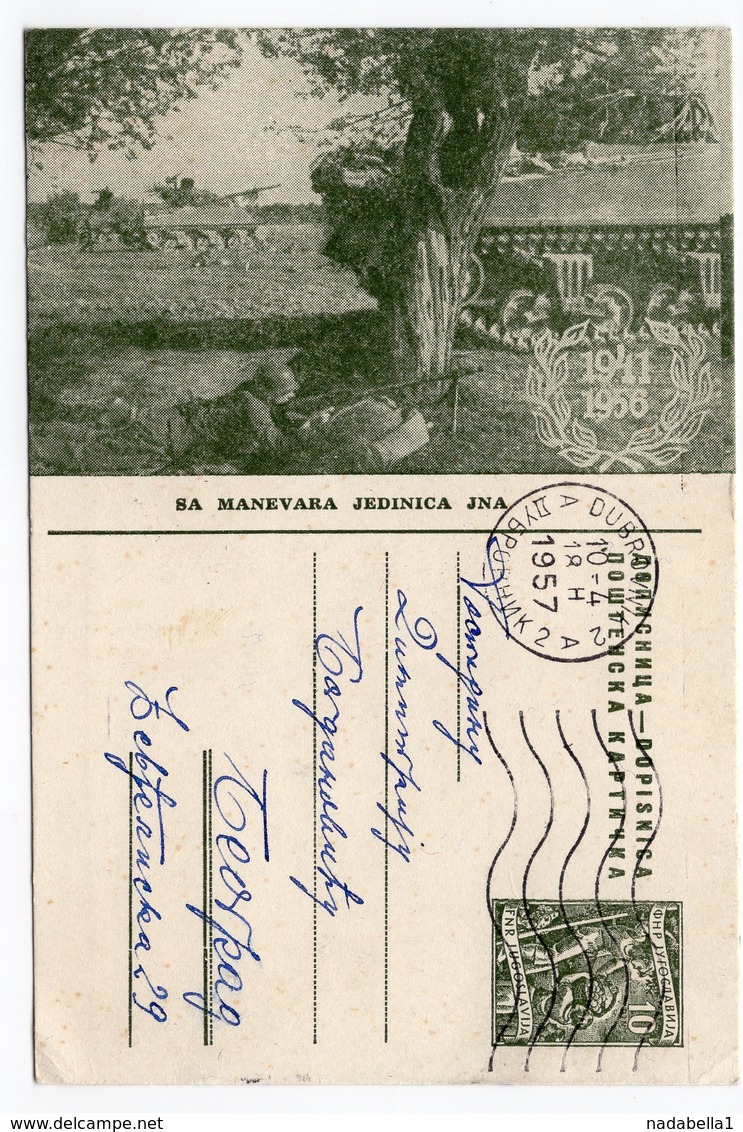 1941
1956
SA MANEVARA JEDINICA JNA
ДОПИСНИЦА — DOPISNICA
ПОШТЕНСКА КАРТИЧКА
DUBROVNIK 2
10-4
18 H
1957
А ДУБРОВНИК 2 А
ФНР ЈУГОСЛАВИЈА
10
FNR JUGOSLAVIJA
Господину
Димитрију
Богдановићу
Београд
Ђевђелиска 29
nadabella1